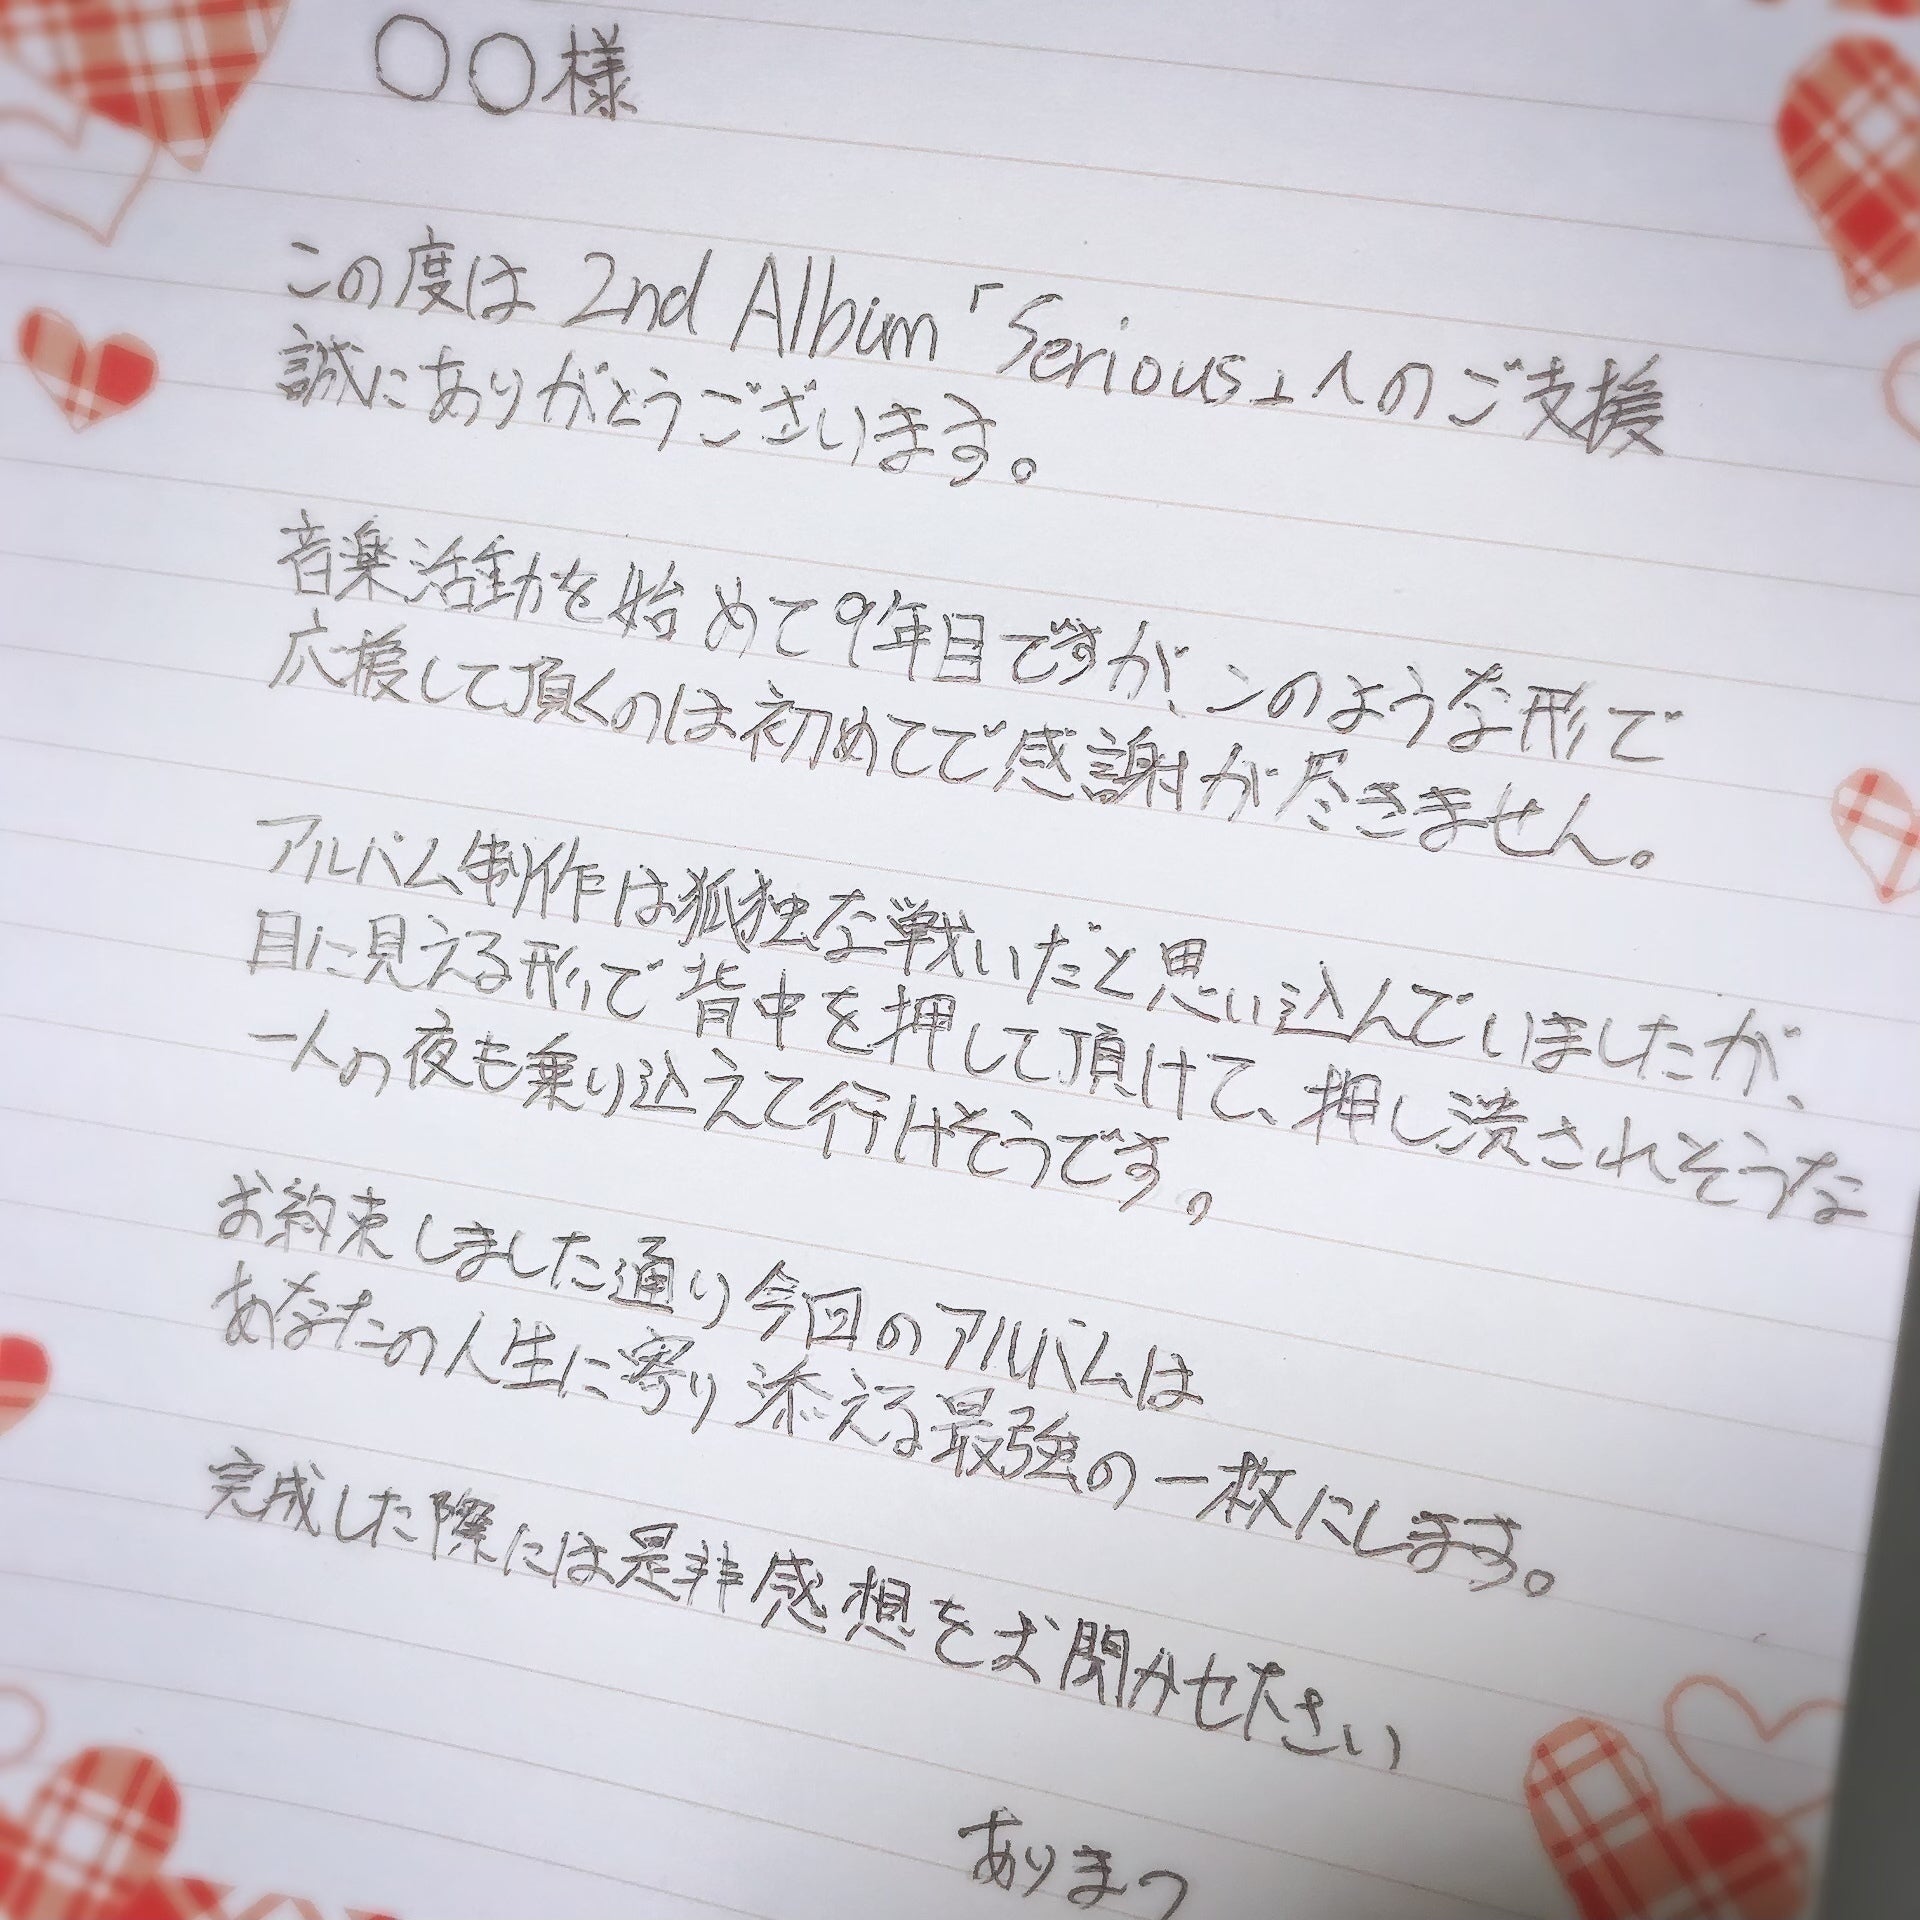 〇〇様
この度は 2nd Album「Serious」へのご支援
誠にありがとうございます。
音楽活動を始めて9年目ですが、このような形で
応援して頂くのは初めてで感謝が尽きません。
アルバム制作は孤独な戦いだと思い込んでいましたが、
目に見える形で背中を押して頂けて、押し潰されそうな
一人の夜も乗り込えて行けそうです。
お約束しました通り今回のアルバムは
あなたの人生に寄り添える最強の一枚にします。
完成した際には是非感想をお聞かせ下さい
ありまつ